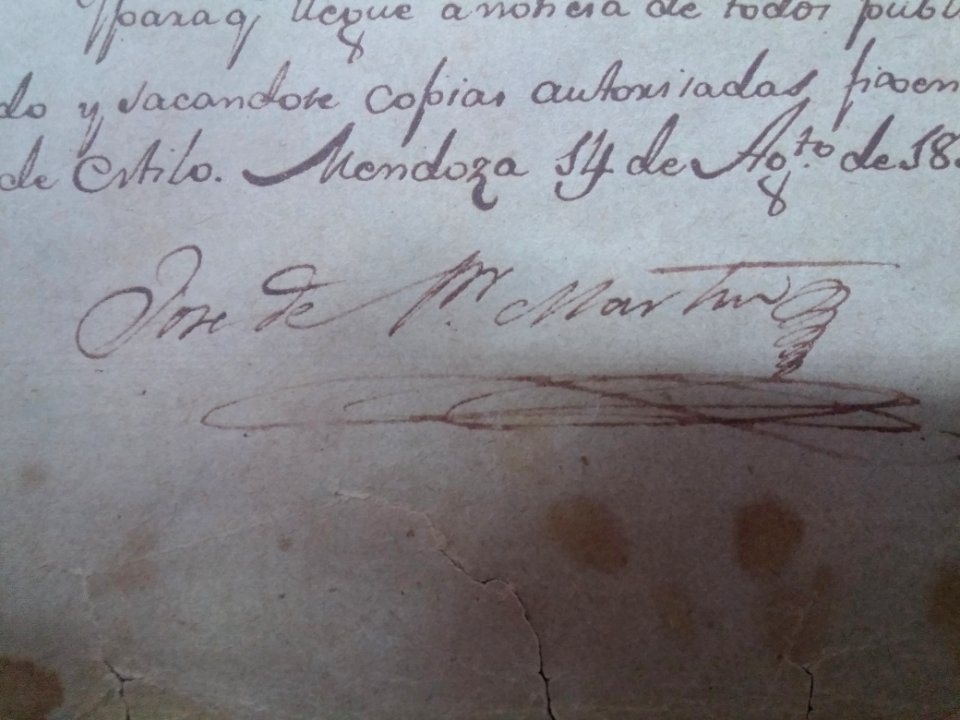 para q llegue a noticia de todos publi
do y sacandose copias autorisadas fixen
de estilo. Mendoza 14 de Ag.to de 18
Jose de Sn. Martin